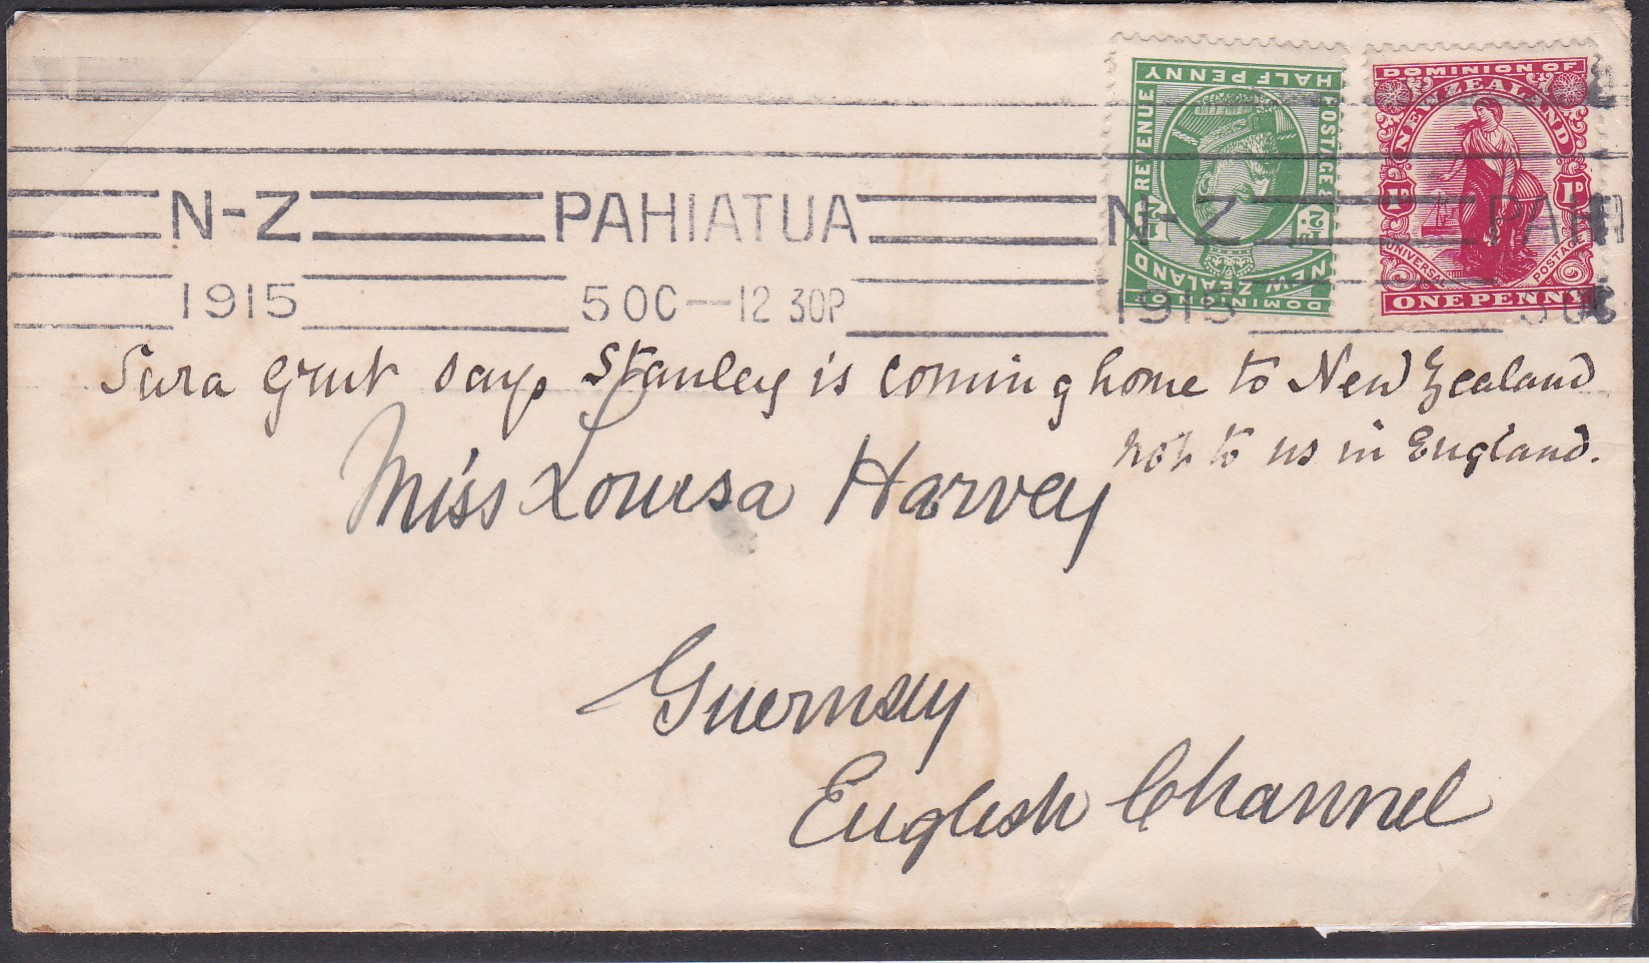 REVENUE
HALF PENNY
POSTAGE &
1/2
1/2
DOMINION OF
NEW ZEALAND
DOMINION OF
NEW ZEALAND
1D 1D
UNIVERSAL POSTAGE
ONE PENNY
N-Z PAHIATUA N-Z PAHI
1915 5 OC—12 30P 1915 5 OC
Sara Grut says Stanley is coming home to New Zealand
not to us in England.
Miss Louisa Harvey
Guernsey
English Channel